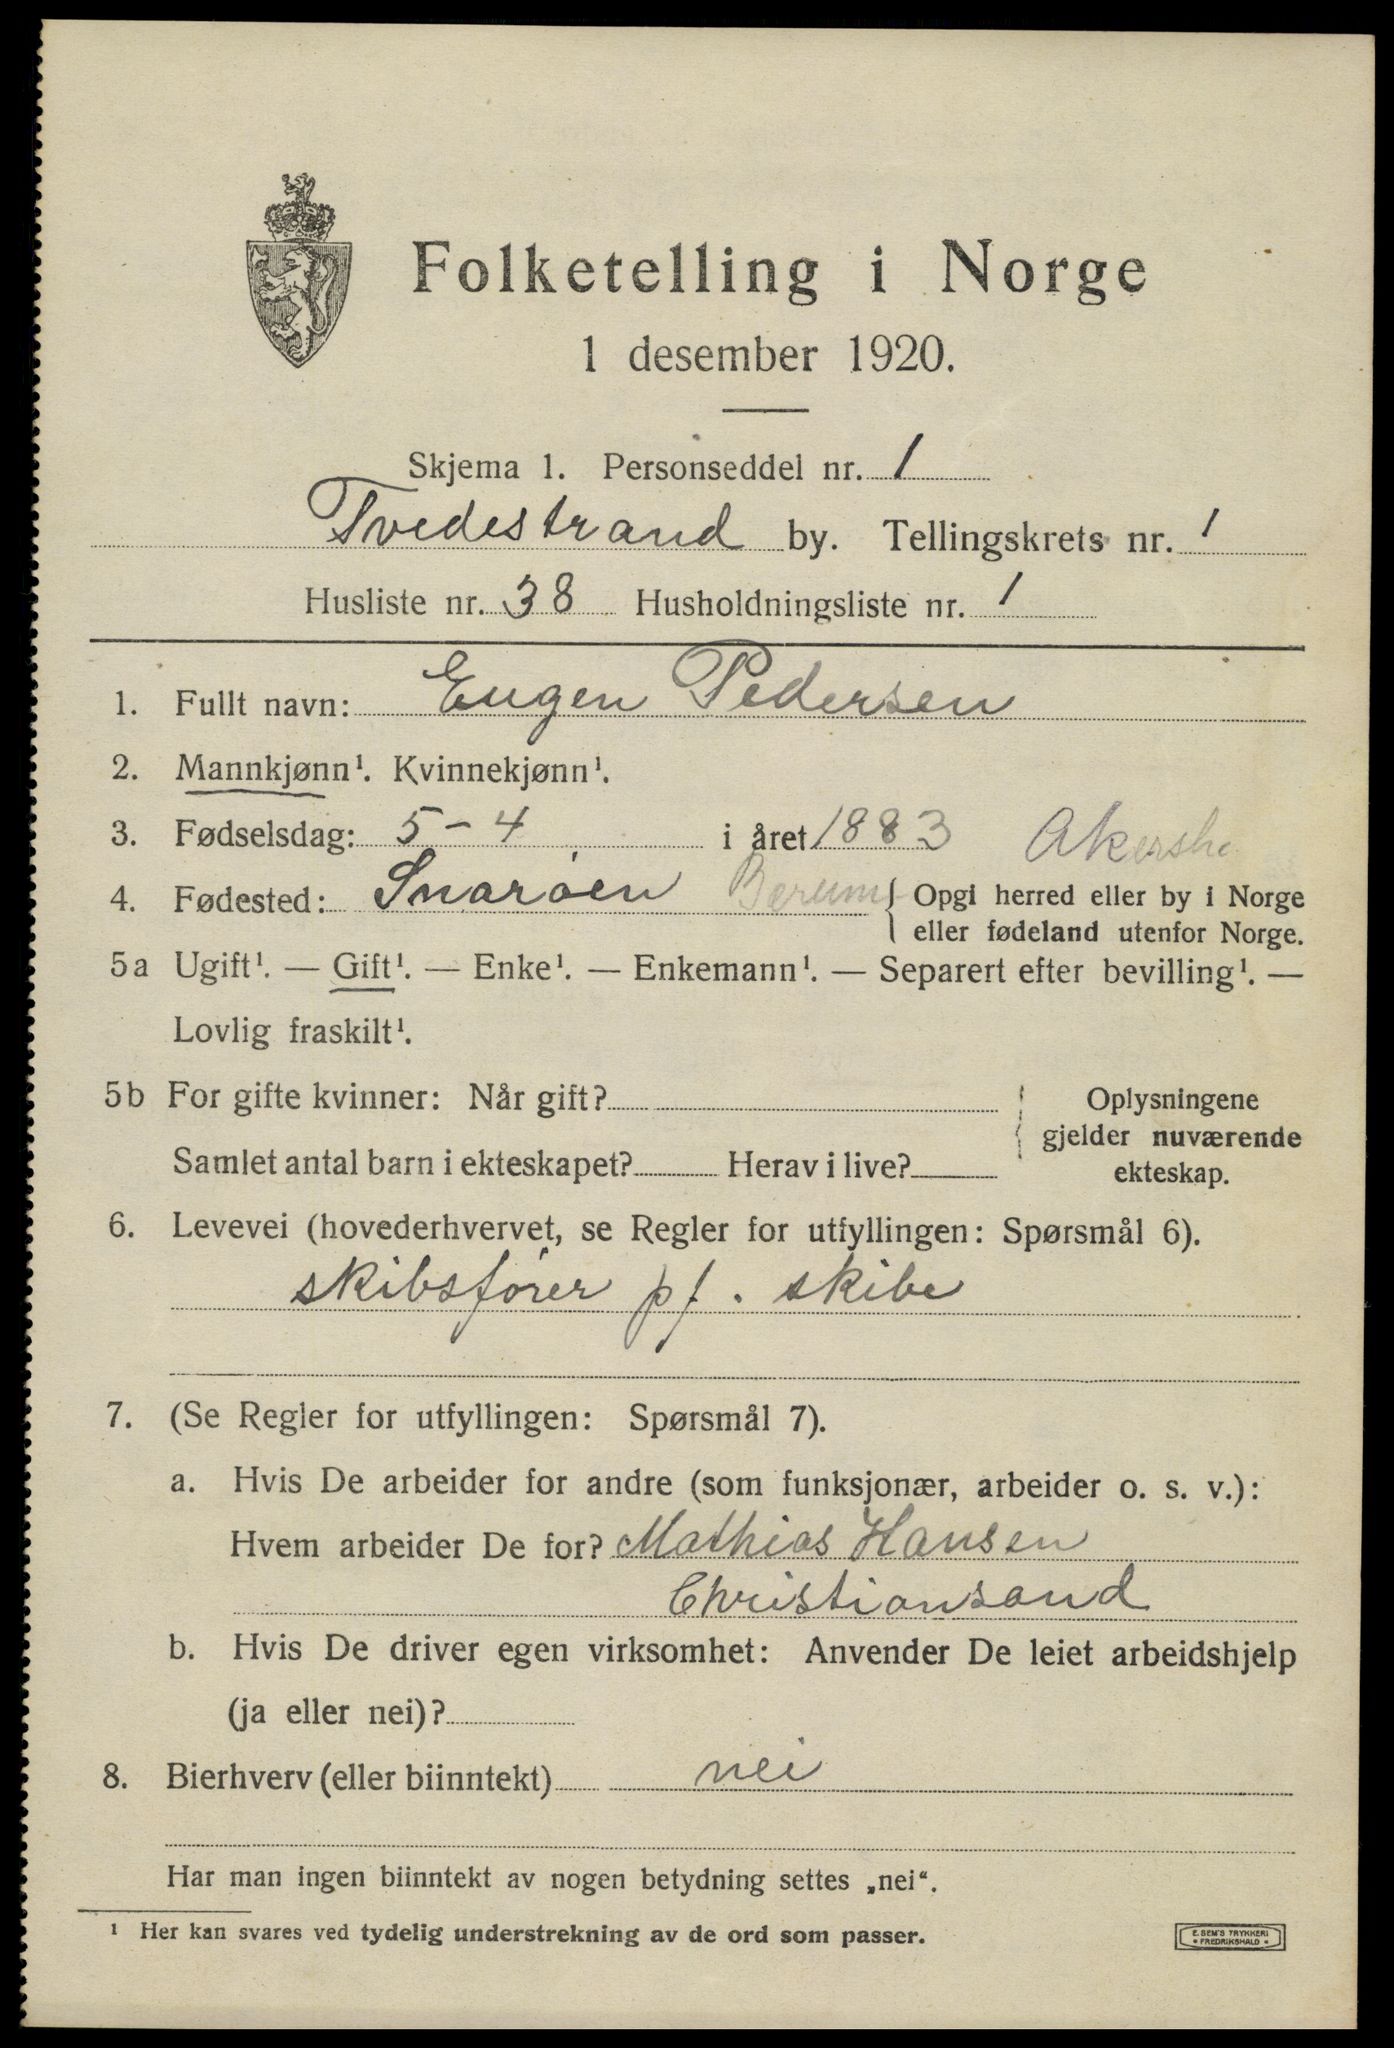 Folketelling i Norge
1 desember 1920.
Skjema 1. Personseddel nr. 1
Tvedestrand by. Tellingskrets nr. 1
Husliste nr. 38 Husholdningsliste nr. 1
1. Fullt navn: Eugen Pedersen
2. Mannkjønn¹. Kvinnekjønn¹.
3. Fødselsdag: 5-4 i året 1883 Akersh
4. Fødested: Snarøen Bærum { Opgi herred eller by i Norge
eller fødeland utenfor Norge.
5a Ugift¹. — Gift¹. — Enke¹. — Enkemann¹. — Separert efter bevilling¹. —
Lovlig fraskilt¹.
5b For gifte kvinner: Når gift?
Samlet antal barn i ekteskapet? Herav i live?
Oplysningene
gjelder nuværende
ekteskap.
6. Levevei (hovederhvervet, se Regler for utfyllingen: Spørsmål 6).
skibsfører pf. skibe
7. (Se Regler for utfyllingen: Spørsmål 7).
a. Hvis De arbeider for andre (som funksjonær, arbeider o. s. v.):
Hvem arbeider De for? Mathias Hansen
Christiansand
b. Hvis De driver egen virksomhet: Anvender De leiet arbeidshjelp
(ja eller nei)?
8. Bierhverv (eller biinntekt) nei
Har man ingen biinntekt av nogen betydning settes „nei“.
¹ Her kan svares ved tydelig understrekning av de ord som passer.
E. SEM'S TRYKKERI
• FREDRIKSHALD •